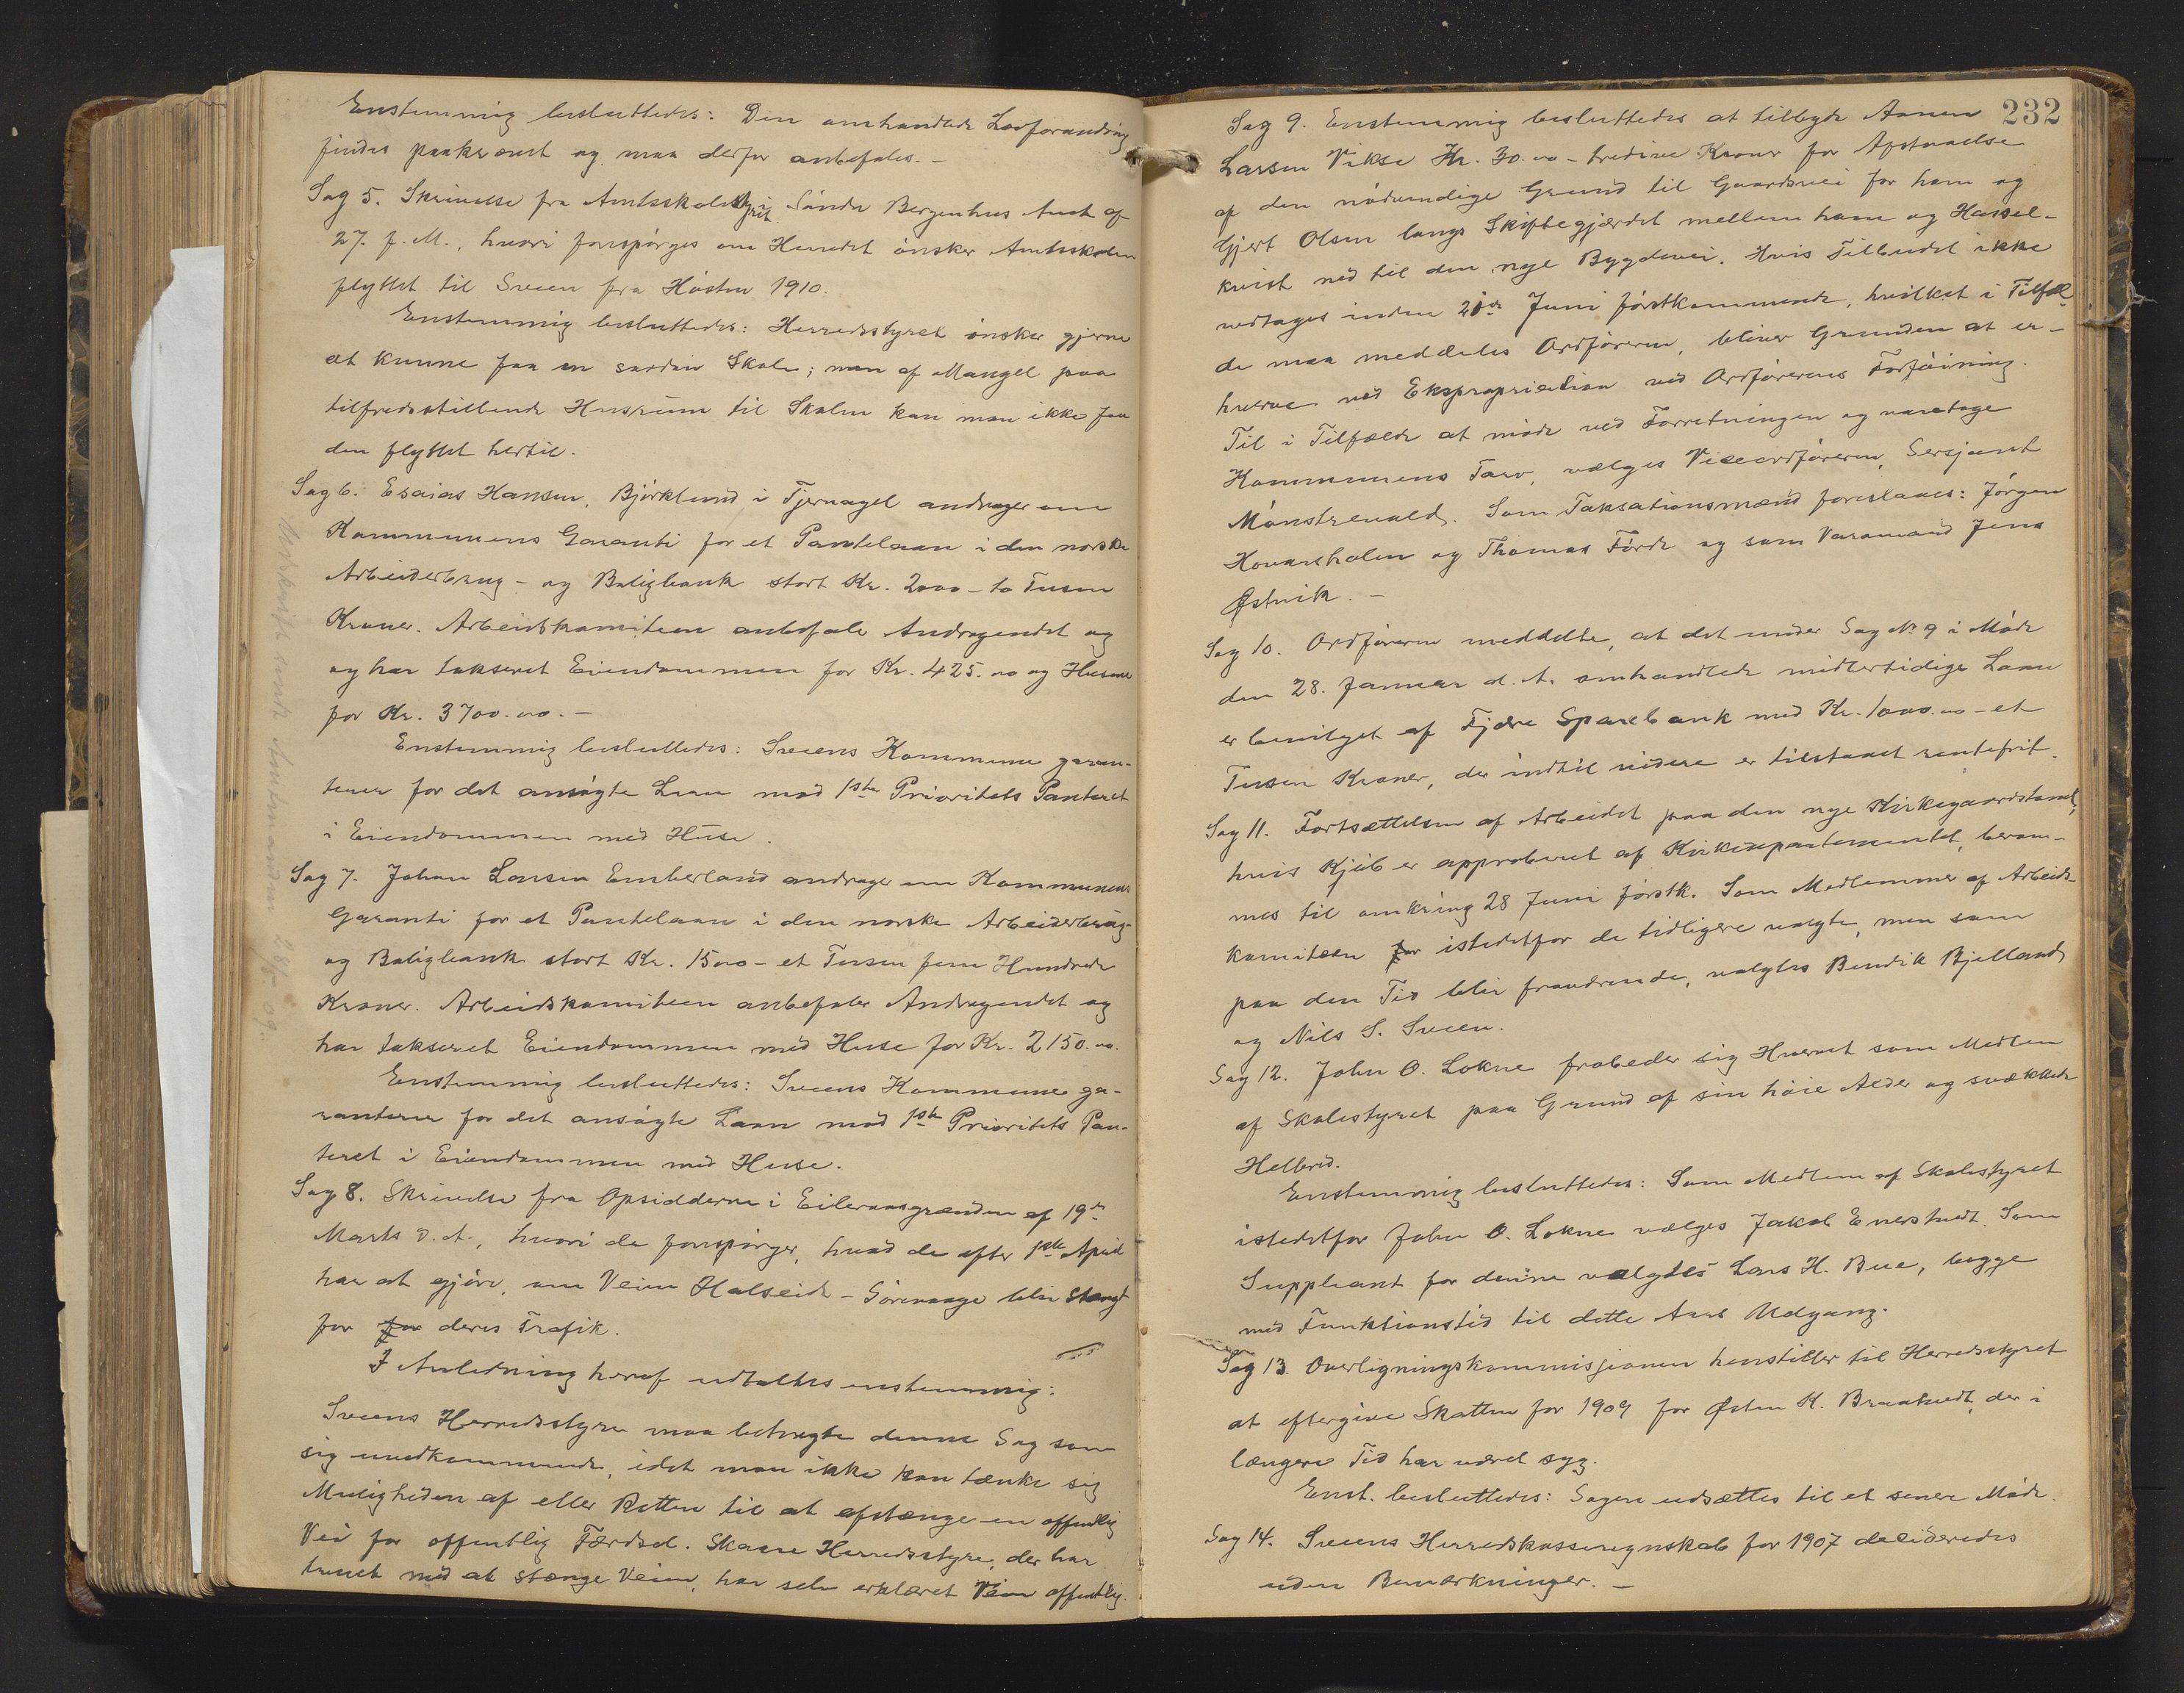 Enstemmig besluttedes: Den omhandlede Lovforandring
findes paakrævet og maa derfor anbefales. -
Sag 5. Skrivelse fra Amtsskolestyret i Søndre Bergenhus Amt af
27. f. M., hvori forespørges om Herredet ønsker Amtsskolen
flyttet til Sveen fra Høsten 1910.
Enstemmig besluttedes: Herredsstyret ønsker gjerne
at kunne faa en saadan Skole; men af Mangel paa
tilfredsstillende Husrum til Skolen kan man ikke faa
den flyttet hertil.
Sag 6. Esaias Hansen, Bjørklund i Tjernagel andrager om
Kommunens Garanti for et Pantelaan i den norske
Arbeiderbrug- og Boligbank stort Kr. 2000 - to Tusen
Kroner. Arbeidskomiteen anbefale Andragendet og
og har takseret Eiendommen for Kr. 425.00 og Husene
for Kr. 3700.00. -
Enstemmig besluttedes: Sveens Kommune garan-
terer for det ansøgte Laan mod 1ste Prioritets Panteret
i Eiendommen med Huse.
Sag 7. Johan Larsen Emberland andrager om Kommunens
Garanti for et Pantelaan i den norske Arbeiderbrug-
og Boligbank stort Kr. 1500 - et Tusen fem Hundrede
Kroner. Arbeidskomiteen anbefaler Andragendet og
har takseret Eiendommen med Huse for Kr. 2150.00.
Enstemmig besluttedes: Sveens Kommune ga-
ranterer for det ansøgte Laan mod 1ste Prioritets Pan-
teret i Eiendommen med Huse.
Sag 8. Skrivelse fra Opsidderne i Eileraasgrænden af 19de
Marts d. A., hvori de forespørger, hvad de efter 1ste April
har at gjøre, om Veien Halseide - Sørevaage blir stængt
for for deres Trafik.
I Anledning heraf udtaltes enstemmig:
Sveens Herredsstyre maa betragte denne Sag som
sig uvedkommende, idet man ikke kan tænke sig
Muligheden af eller Retten til at afstænge en offentlig
Vei for offentlig Færdsel. Skaare Herredsstyre, der har
truet med at stænge Veien, har selv erklæret Veien offentlig.
232
Sag 9. Enstemmig besluttedes at tilbyde Annen
Larsen Vikse Kr. 30.00 - tredive Kroner for Afstaaelse
af den nødvendige Grund til Gaardsvei for ham og
Gjert Olsen langs Skiftegjærdet mellem ham og Hassel-
kvist ned til den nye Bygdevei. Hvis Tilbudet ikke
vedtages inden 20de Juni førstkommende, hvilket i Tilfæl-
de maa meddeles Ordføreren, bliver Grunden at er-
hverve ved Ekspropriation ved Ordførerens Forføining.
Til i Tilfælde at møde ved Forretningen og varetage
Kommunens Tarv, vælges Viceordføreren, Sersjant
Mønstrevold. Som Taksationsmænd foreslaaes: Jørgen
Hovarsholm og Thomas Førde og som Varamand Jens
Østvik. -
Sag 10. Ordføreren meddelte, at det under Sag No 9 i Møde
den 28. Januar d. A. omhandlede midlertidige Laan
er bevilget af Fjære Sparebank med Kr. 1000.00 - et
Tusen Kroner, der indtil videre er tilstaaet rentefrit.
Sag 11. Fortsættelsen af Arbeidet paa den nye Kirkegaardstomt,
hvis Kjøb er approberet af Kirkedepartementet, beram-
mes til omkring 28 Juni førstk. Som Medlemmer af Arbeids-
komiteen for istedetfor de tidligere valgte, men som
paa den Tid blir fraværende, valgtes Bendik Bjelland
og Nils S. Sveen.
Sag 12. John O. Lokne frabeder sig Hvervet som Medlem
af Skolestyret paa Grund af sin høie Alder og svækkede
Helbred.
Enstemmig besluttedes: Som Medlem af Skolestyret
istedetfor John O. Lokne vælges Jakob Enerstvedt. Som
Suppleant for denne valgtes Lars H. Bue, begge
med Funktionstid til dette Aars Udgang.
Sag 13. Overligningskommisjonen henstiller til Herredsstyret
at eftergive Skatten for 1909 for Østen K. Braatvedt, der i
længere Tid har været syg.
Enst. besluttedes: Sagen udsættes til et senere Møde.
Sag 14. Sveens Herredskasseregnskab for 1907 desideredes
uden Bemærkninger. -